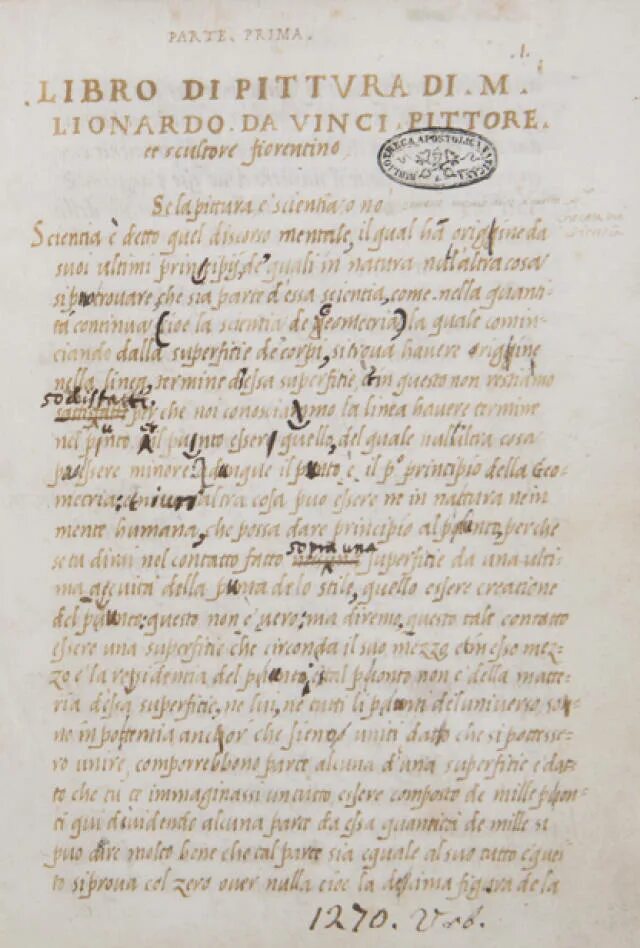 PARTE. PRIMA.
.1.
.LIBRO DI PITTVRA DI . M .
LIONARDO . DA VINCI . PITTORE .
et scultore fiorentino
BIBLIOTHECA APOSTOLICA VATICANA
Se la pittura e scientia o no
Scientia è detto quel discorso mentale, il qual ha origine da
suoi ultimi principij, de' quali in natura null'altra cosa
si può trouare, che sia parte d'essa scientia, come nella quanti-
tá continua (cioe la scientia de Geometria) la quale comin-
ciando dalla superfitie de' corpi, si troua hauere origine
nella linea, termine d'essa superfitie, et in questo non restiamo
sodisfatti,
satisfatti perche noi conosciamo la linea hauere termine
nel punto, et il punto essere quello, del quale null'altra cosa
pó essere minore. Dunque il punto è il p.º principio della Geo-
metria, et niun'altra cosa puo essere ne in natura ne in
mente humana, che possa dare principio al punto, perche
sopra una
se tu dirai nel contatto fatto superfitie da una ulti-
ma accuità della punta de lo stile, quello essere creatione
del punto: questo non è vero: ma diremo, questo tale contatto
essere una superfitie che circonda il suo mezzo et in esso mez-
zo é la residentia del punto, e tal punto non é della matte-
ria d'essa superfitie, ne lui, ne tutti li punti del universo son-
no in potentia anchor che sieno uniti dato che si potesse-
ro unire, comporrebbono parte alcuna d'una superfitie e da-
to che tu te immaginassi un tutto essere composto da mille pon-
ti qui diuidendo alcuna parte da essa quantità de mille si
puo dire molto bene che tal parte sia equale al suo tutto e que-
to si proua col zero ouer nulla cioe la decima figura de la
1270. Urb.